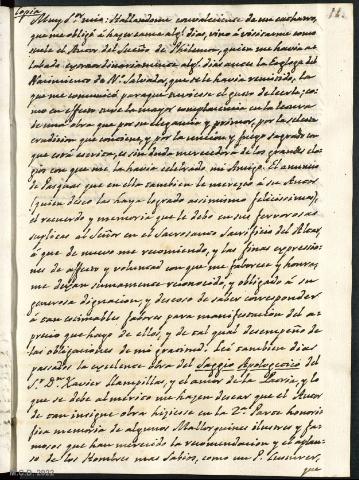 Copia
12.
Muy S.ra mia: Hallandome convaleciente de un catharro,
que me obligó á hacer cama algs. dias, vino á visitarme como
suele el Autor del Sueño de Philemon, quien me havia ha-
blado extraordinariamente algs. dias antes la Egloga del
Nacimiento de N.o Salvador, que se le havia remitido, la
que me comunicó para que tuviese el gusto de leerla; co-
mo en efecto tuve la mayor complacencia en la lectura
de una obra que por su elegancia y primor, por la selecta
erudicion que contiene, y por la uncion y fuego sagrado con
que está escrita, es sin duda merecedora de los grandes elo-
gios con que me la havia celebrado mi Amigo. El anuncio
de Pasquas que en ella tambien le mereció á su Autor
(quien deseo las haya logrado assimismo felicissimas),
el recuerdo y memoria que le debo en sus fervorosas
suplicas al Señor en el Sacrosanto Sacrificio del Altar,
á que de nuevo me recomiendo, y las finas expressio-
nes de afecto y voluntad con que me favorece y honra,
me dexan sumamente reconocido, y obligado á su
generosa dignacion, y deseoso de saber corresponder
á tan estimables favores para manifestacion del a-
precio que hago de ellos, y de tal qual desempeño de
las obligaciones de mi gratitud. Lei tambien dias
passados la excelente obra del Saggio Apologetico del
S.r D.n Xavier Llampillas, y el amor de la Patria, y lo
que se debe al merito me hacen desear que el Autor
de tan insigne obra hiciese en la 2.da Parte honori-
fica memoria de algunos Mallorquines ilustres y fa-
mosos que han merecido la recomendacion y el aplau-
so de los Hombres mas sabios, como un P.
que
M.C.D. 2022